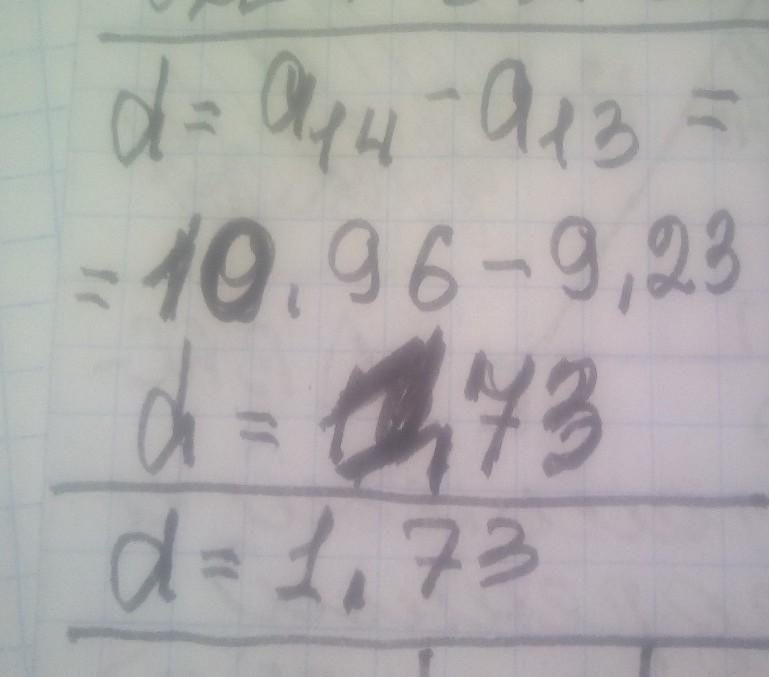 d = a14 - a13 =
= 10,96 - 9,23
d = 1,73
d = 1,73